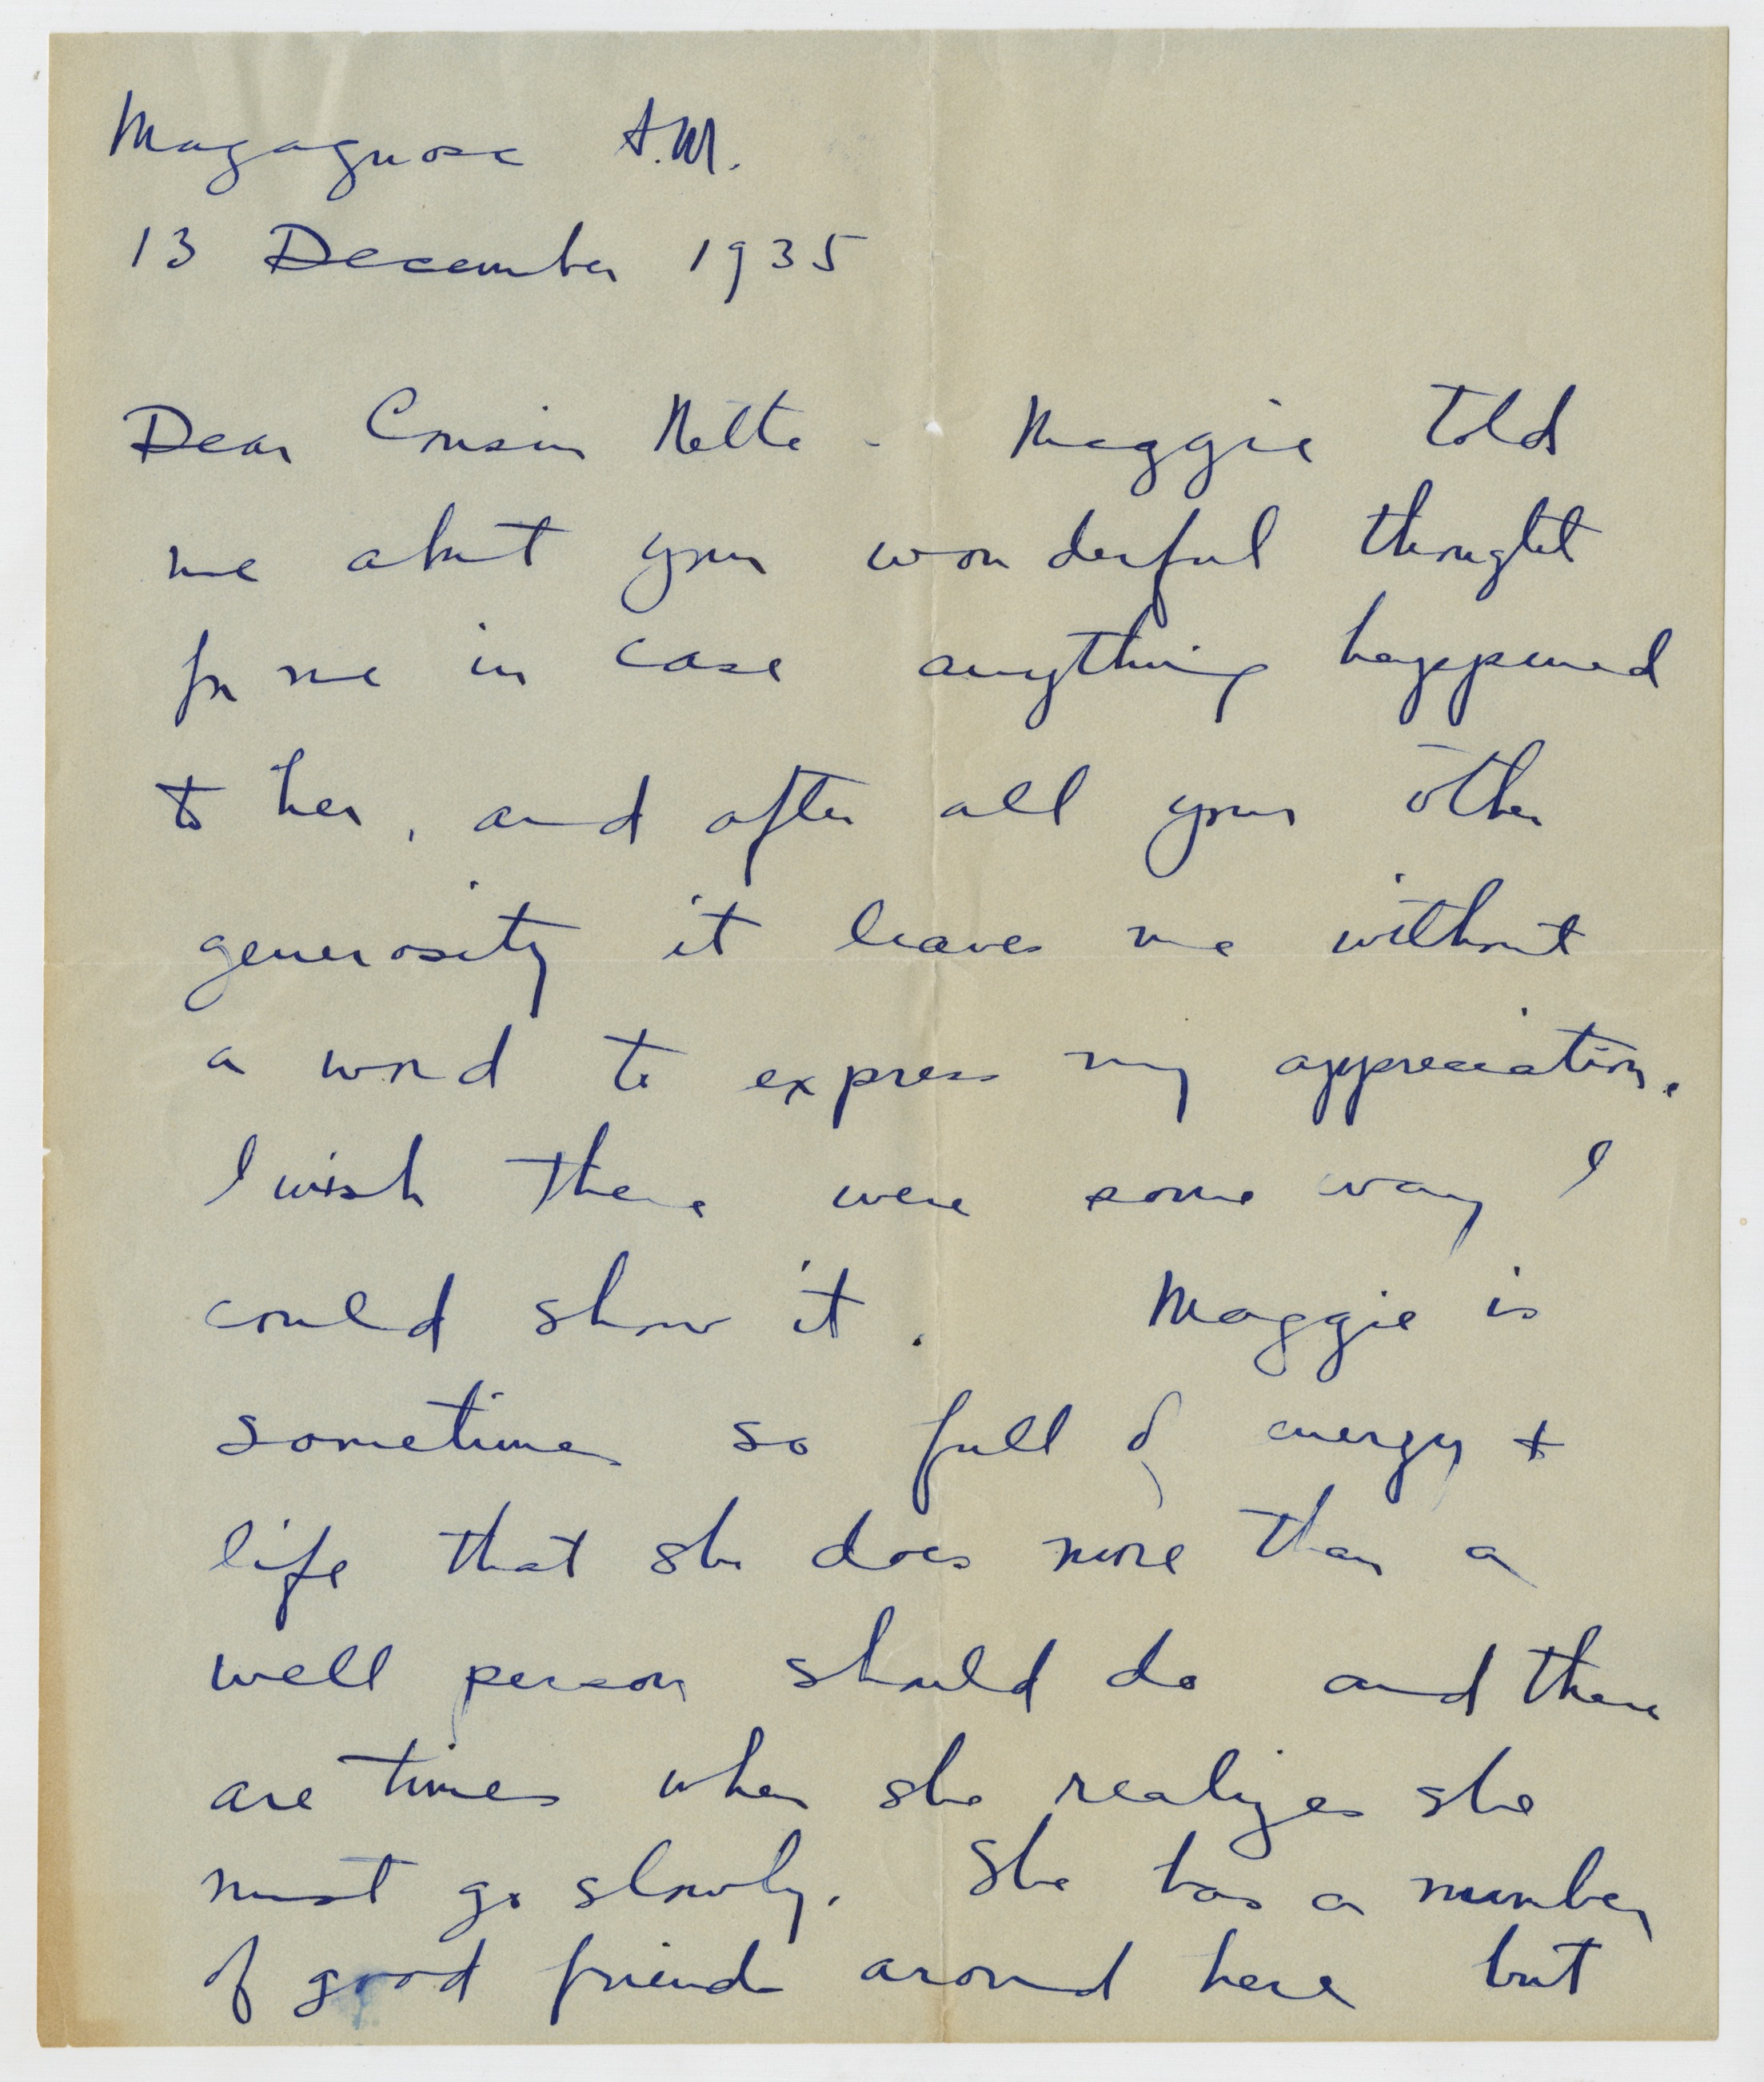 Magagnosc A.M.
13 December 1935
Dear Cousin Nettie - Maggie told
me about your wonderful thought
for me in case anything happened
to her, and after all your other
generosity it leaves me without
a word to express my appreciation.
I wish there were some way I
could show it. Maggie is
sometimes so full of energy +
life that she does more than a
well person should do and there
are times when she realizes she
must go slowly. She has a number
of good friends around here but